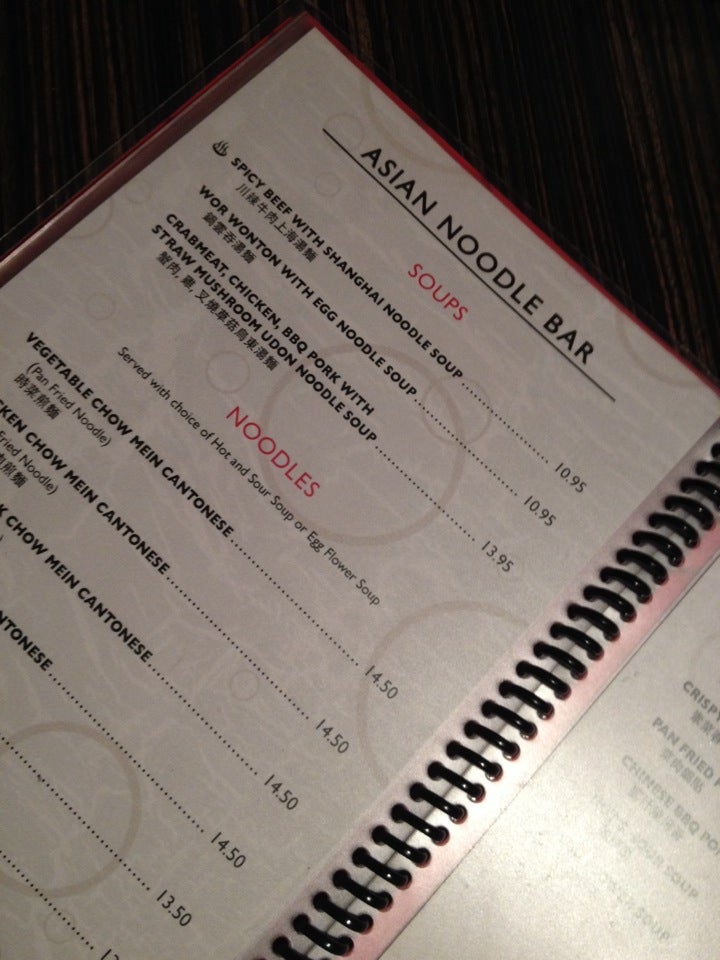 ASIAN NOODLE BAR
SOUPS
SPICY BEEF WITH SHANGHAI NOODLE SOUP 10.95
川辣牛肉上海湯麵
WOR WONTON WITH EGG NOODLE SOUP 10.95
鍋雲吞湯麵
CRABMEAT, CHICKEN, BBQ PORK WITH
STRAW MUSHROOM UDON NOODLE SOUP 13.95
蟹肉, 雞, 叉燒草菇烏東湯麵
NOODLES
Served with choice of Hot and Sour Soup or Egg Flower Soup
VEGETABLE CHOW MEIN CANTONESE 14.50
(Pan Fried Noodle)
時菜煎麵
CKEN CHOW MEIN CANTONESE 14.50
Fried Noodle)
肉煎麵
K CHOW MEIN CANTONESE 14.50
NTONESE 14.50
13.50
CRISP
PAN FRIED
CHINESE BBQ PO
SOUP
SOUP